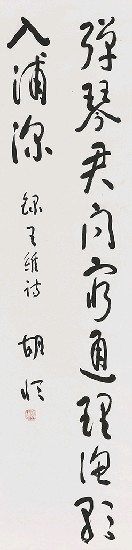 彈琴君问穷通理渔歌
入浦深
録王維诗
胡